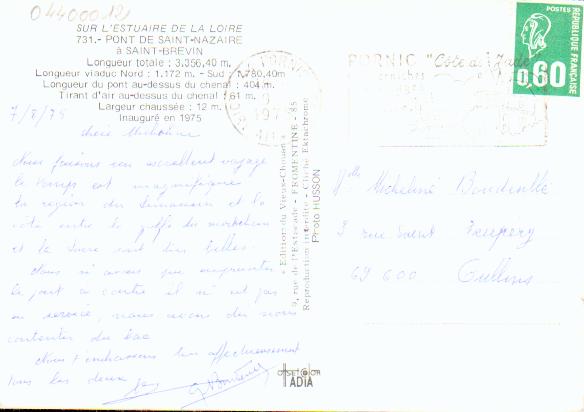 044000121
SUR L'ESTUAIRE DE LA LOIRE
731.- PONT DE SAINT-NAZAIRE
à SAINT-BREVIN
Longueur totale : 3.356,40 m.
Longueur viaduc Nord : 1.172 m. - Sud : 1.780,40m
Longueur du pont au-dessus du chenal : 404 m.
Tirant d'air au-dessus du chenal : 61 m.
Largeur chaussée : 12 m.
Inauguré en 1975
7/8/75
chère Micheline
Nous faisons un excellent voyage
le temps est magnifique
la région du Limousin et la
côte entre le golfe du morbihan
et la Loire sont très belles.
Nous n'avons pas emprunter
le pont ci contre il n'est pas
en service, nous avons dû nous
contenter du bac
Nous t'embrassons bien affectueusement
tous les deux
« Edition du Vieux-Chouan »
9, rue de l'Estacade - FROMENTINE - 85
Reproduction interdite - Cliché Ektachrome
Photo HUSSON
offset color
IADIA
PORNIC "Côte de Jade"
POSTES
RÉPUBLIQUE FRANÇAISE
0,60
Mlle Micheline
9 rue Saint Exupery
69600 Oullins